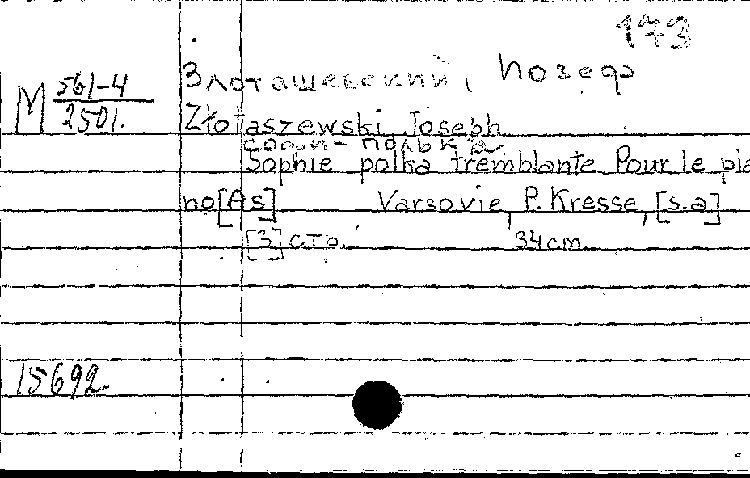 173
Злоташевский, Йозеф
М 561-4
2501.
Złotaszewski Joseph
Софи-полька
Sophie polka tremblante Pour le pia
no [As] Varsovie, P. Kresse, [s.a]
[3] стр. 34 cm
15692.